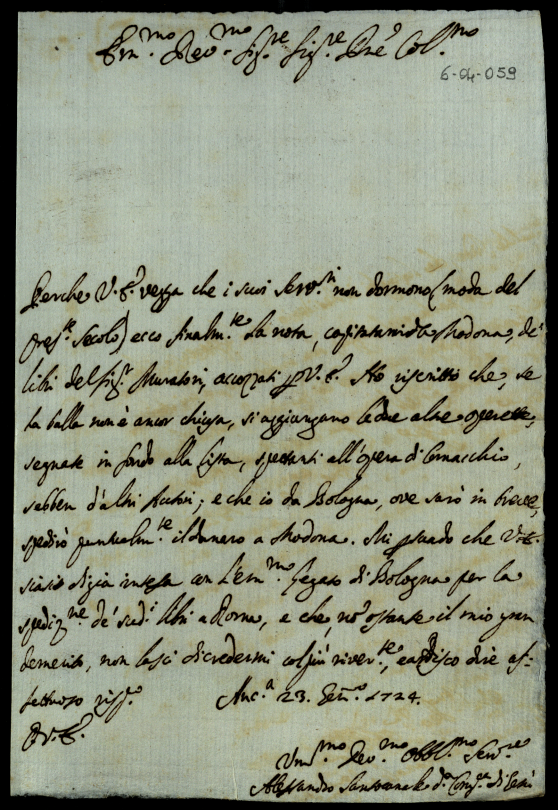 Em.mo Rev.mo Sig.re Sig.re Pne Col.mo
6-04-059
Perche V. E. vegga che i suoi Serv.ri non dormono (moda del
pres.te Secolo) ecco finalm.te la nota, capitatami da Modona, de'
libri del Sig.r Muratori, accozzati p V. E. Ho riscritto che, se
la balla non è ancor chiusa, si aggiungano le due altre operette,
segnate in fondo alla lista, spettanti all'opera di Comacchio,
sebben d'altri Autori; e che io da Bologna, ove sarò in breve,
spedirò puntualm.te il danaro a Modona. Mi psuado che V. E.
siasi di già intesa con l'Em.mo Legato di Bologna per la
spediz.ne de' sud.i libri a Roma, e che, nō ostante il mio gran
demerito, non lasci di credermi col più river.te, e ardisco dire af-
fettuoso risp.o Anc.a 23. Gen.o 1724.
D. V. E.
Um.mo Dev.mo Obbl.mo Serv.re
Alessandro d. Comp.a di Gesù